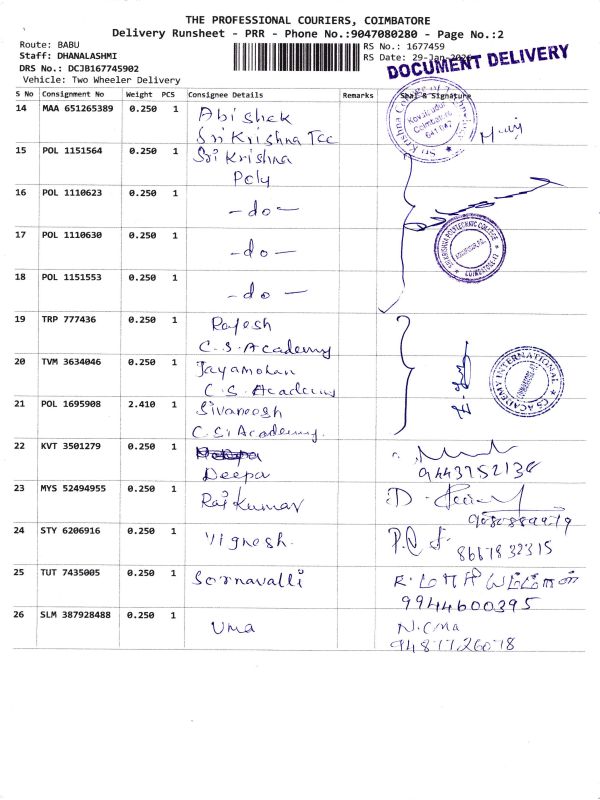 THE PROFESSIONAL COURIERS, COIMBATORE
Delivery Runsheet - PRR - Phone No.:9047080280 - Page No.:2
Route: BABU
Staff: DHANALASHMI
DRS No.: DCJB167745902
Vehicle: Two Wheeler Delivery
RS No.: 1677459
RS Date: 29-Jan-2026
DOCUMENT DELIVERY
S No Consignment No Weight PCS Consignee Details Remarks Seal & Signature
14 MAA 651265389 0.250 1 Abishek
Sri Krishna Tcc
15 POL 1151564 0.250 1 Sri Krishna
Poly
16 POL 1110623 0.250 1 -do-
17 POL 1110630 0.250 1 -do-
SRI KRISHNA POLYTECHNIC COLLEGE
18 POL 1151553 0.250 1 -do-
19 TRP 777436 0.250 1 Rajesh
C.S. Academy
20 TVM 3634046 0.250 1 Jayamohan
C.S. Academy
CS ACADEMY INTERNATIONAL
21 POL 1695908 2.410 1 Sivaneesh
C.S. Academy.
22 KVT 3501279 0.250 1
Deepa 9443752136
23 MYS 52494955 0.250 1 Rajkumar
24 STY 6206916 0.250 1 Vignesh.
8667832315
25 TUT 7435005 0.250 1 Sornavalli
9944600395
26 SLM 387928488 0.250 1 Uma N. Uma
9487726078